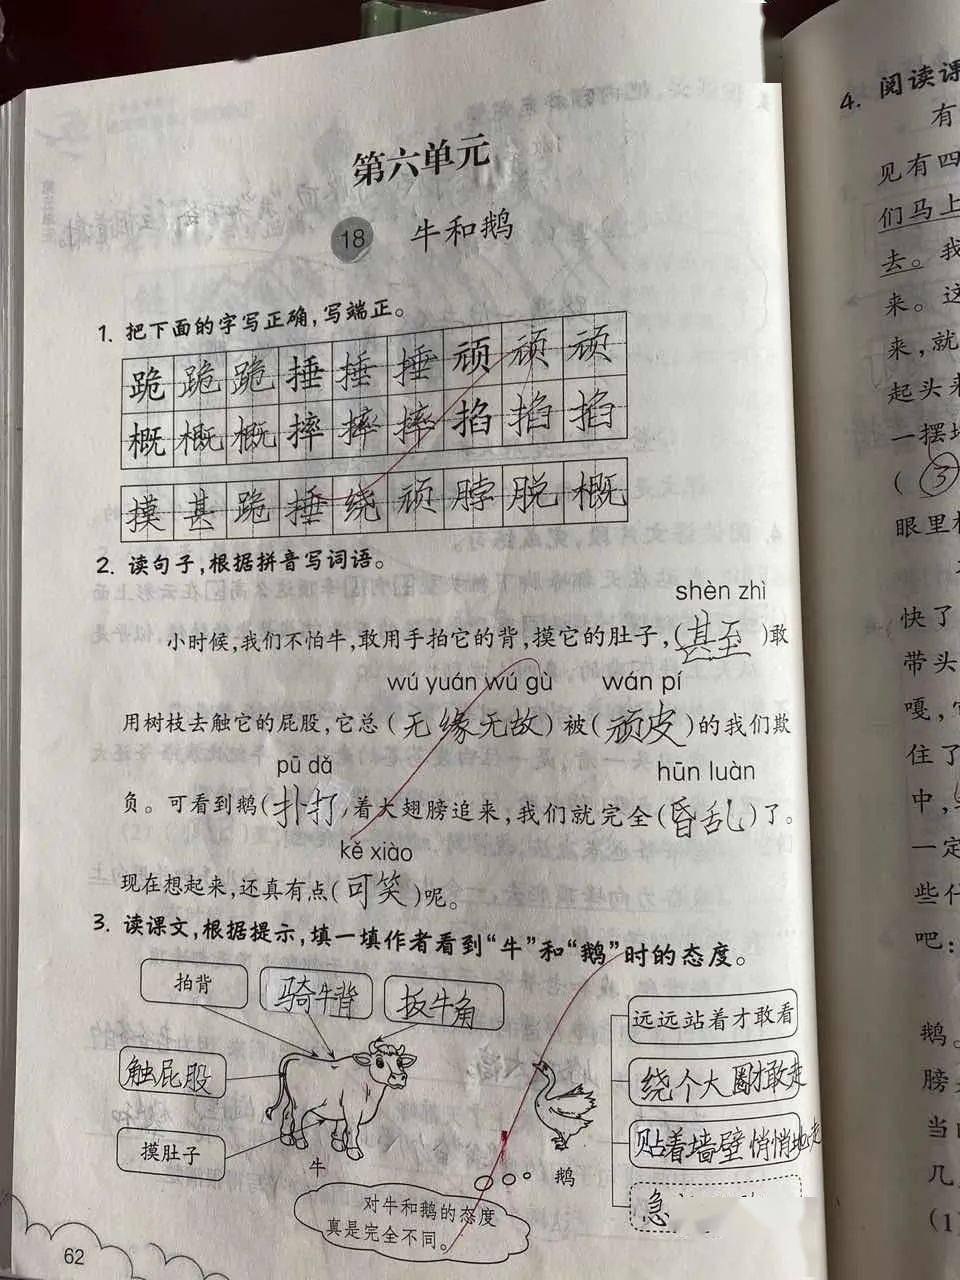 第六单元
18 牛和鹅
1. 把下面的字写正确，写端正。
跪 跪 跪 捶 捶 捶 顽 顽 顽
概 概 概 摔 摔 摔 掐 掐 掐
摸 甚 跪 捶 绕 顽 脖 脱 概
2. 读句子，根据拼音写词语。
shèn zhì
小时候，我们不怕牛，敢用手拍它的背，摸它的肚子，(甚至)敢
wú yuán wú gù wán pí
用树枝去触它的屁股，它总(无缘无故)被(顽皮)的我们欺
pū dǎ hūn luàn
负。可看到鹅(扑打)着大翅膀追来，我们就完全(昏乱)了。
kě xiào
现在想起来，还真有点(可笑)呢。
3. 读课文，根据提示，填一填作者看到“牛”和“鹅”时的态度。
拍背 骑牛背 扳牛角
触屁股
摸肚子
牛
远远站着才敢看
绕个大圈才敢走
贴着墙壁悄悄地走
急
鹅
对牛和鹅的态度
真是完全不同。
62
4. 阅读课
有
见有四
们马上
去。我
来。这
来，就
起头来
一摆
(③)
眼里
快了
带头
嘎，
住了
中，
一定
些什
吧：
鹅。
膀
当
几
(1